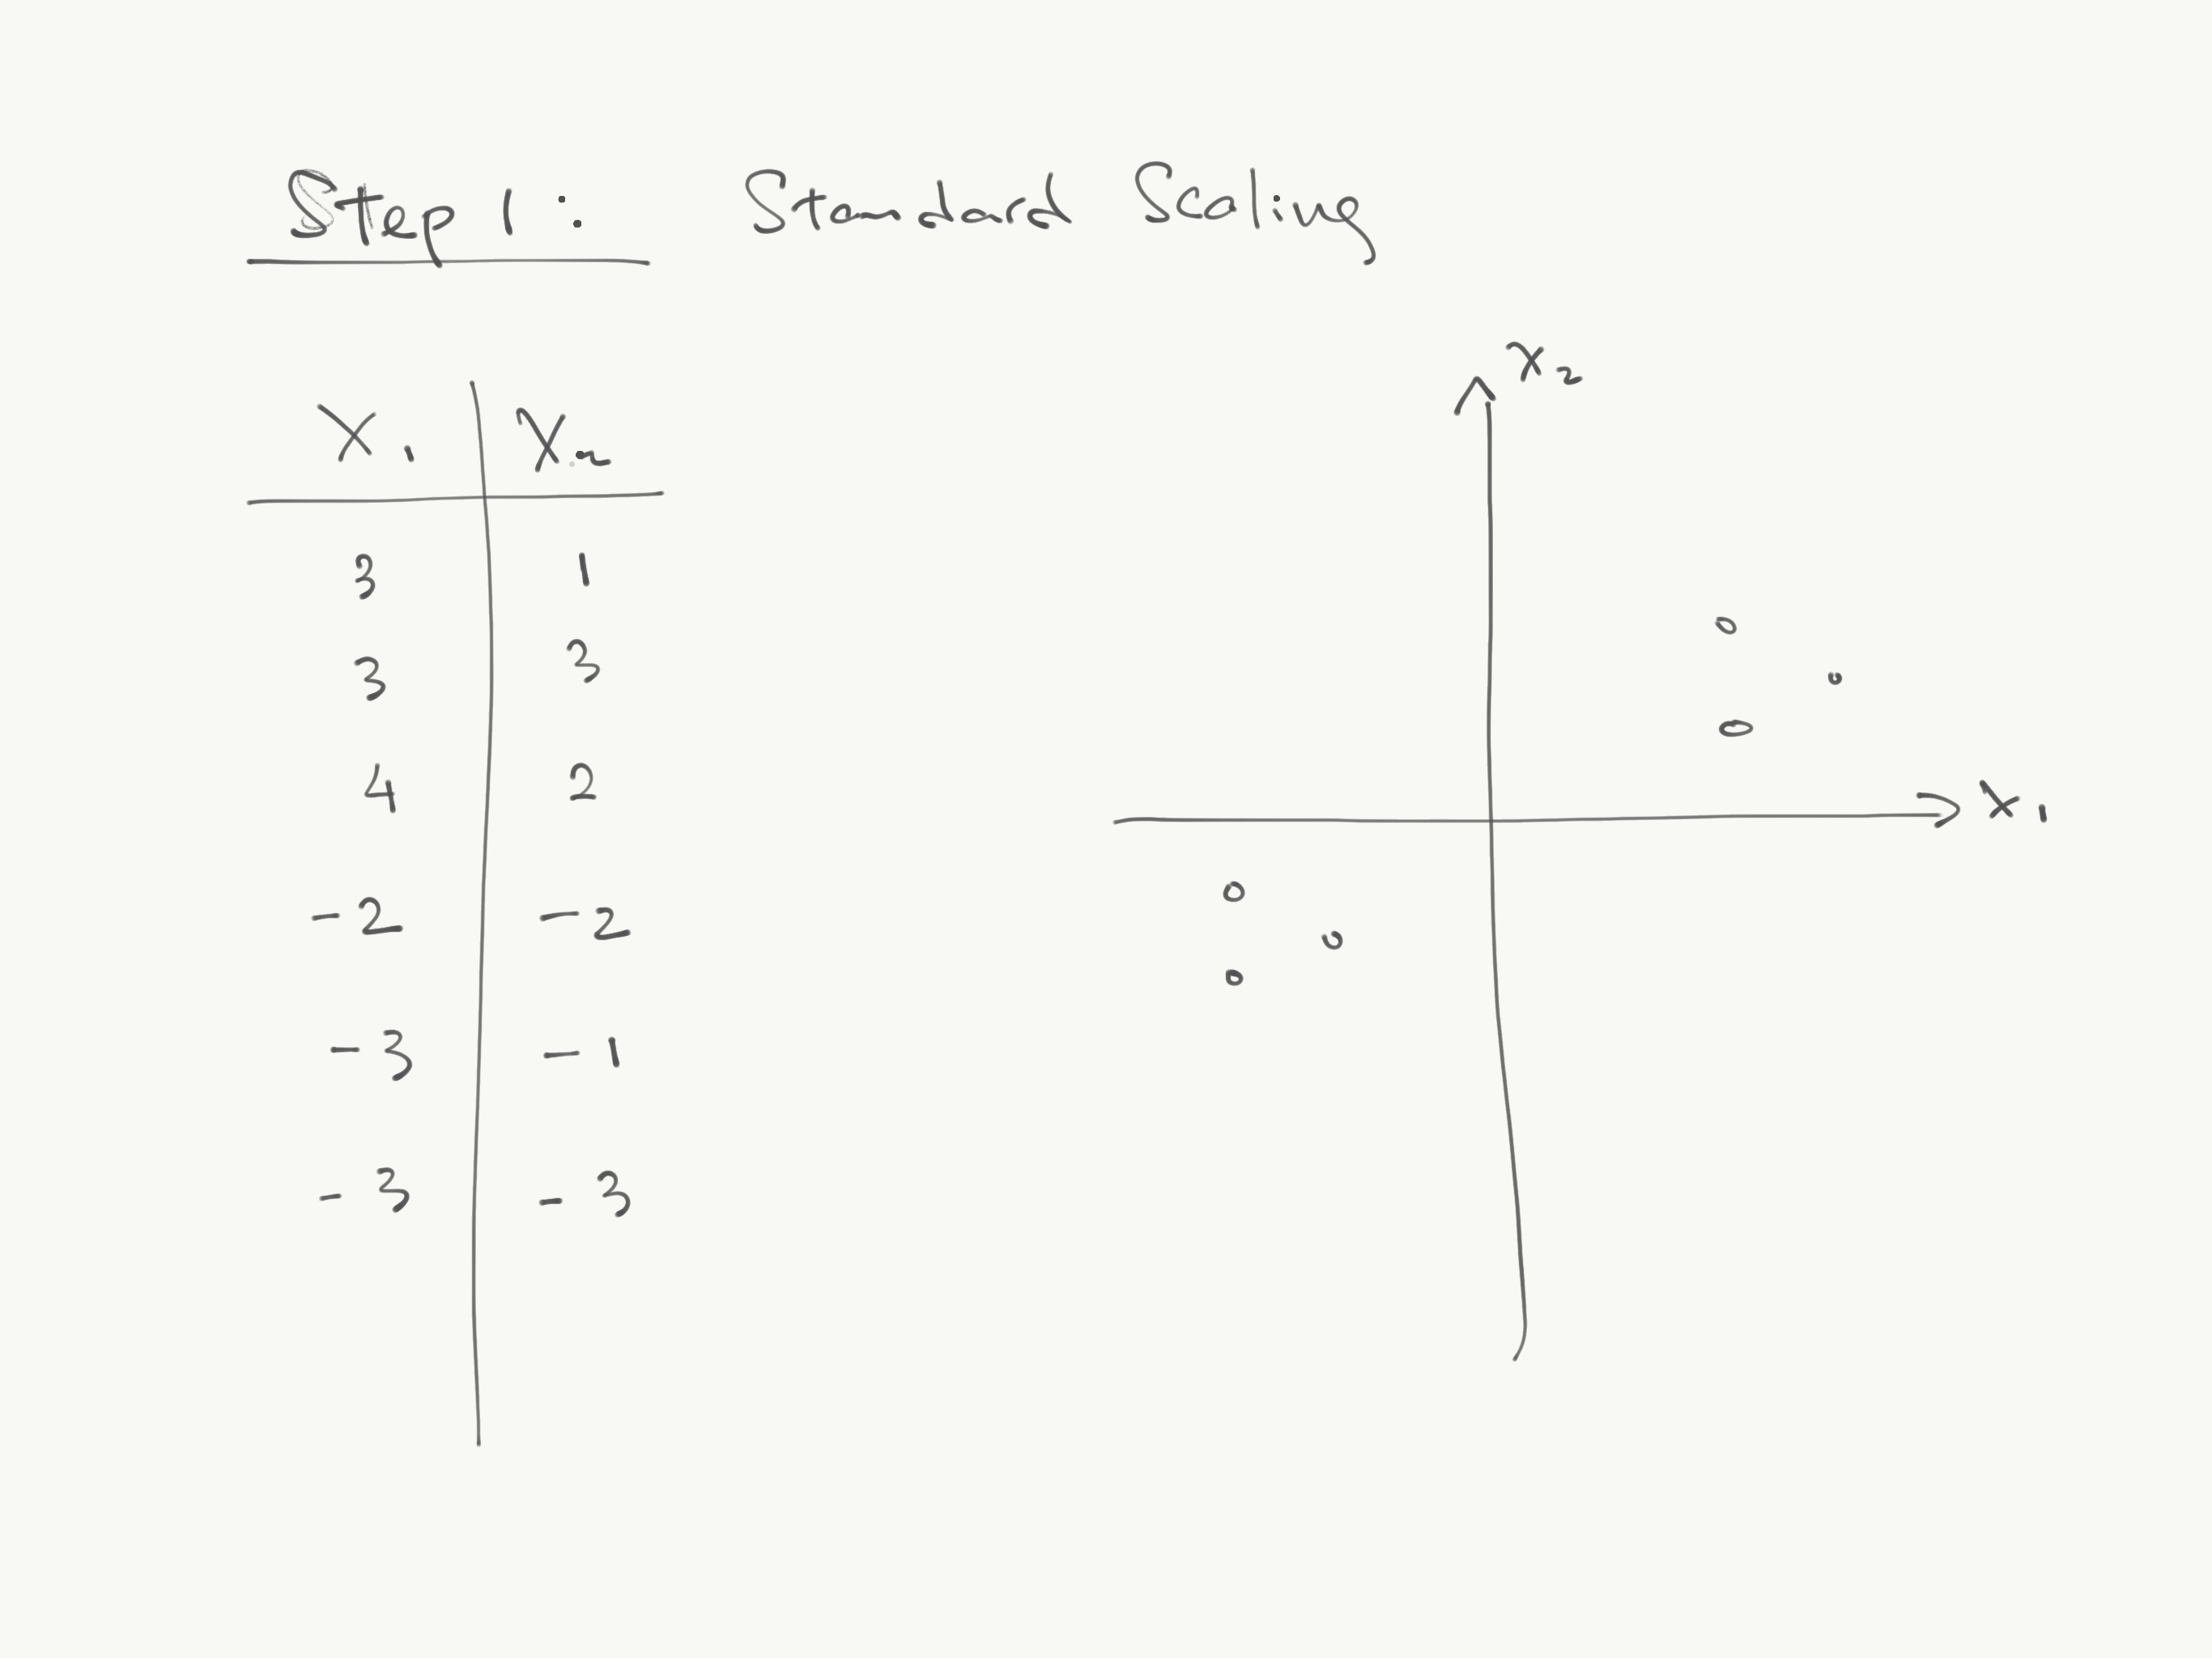 Step 1: Standard Scaling
X1 X2
3 1
3 3
4 2
-2 -2
-3 -1
-3 -3
x2
x1